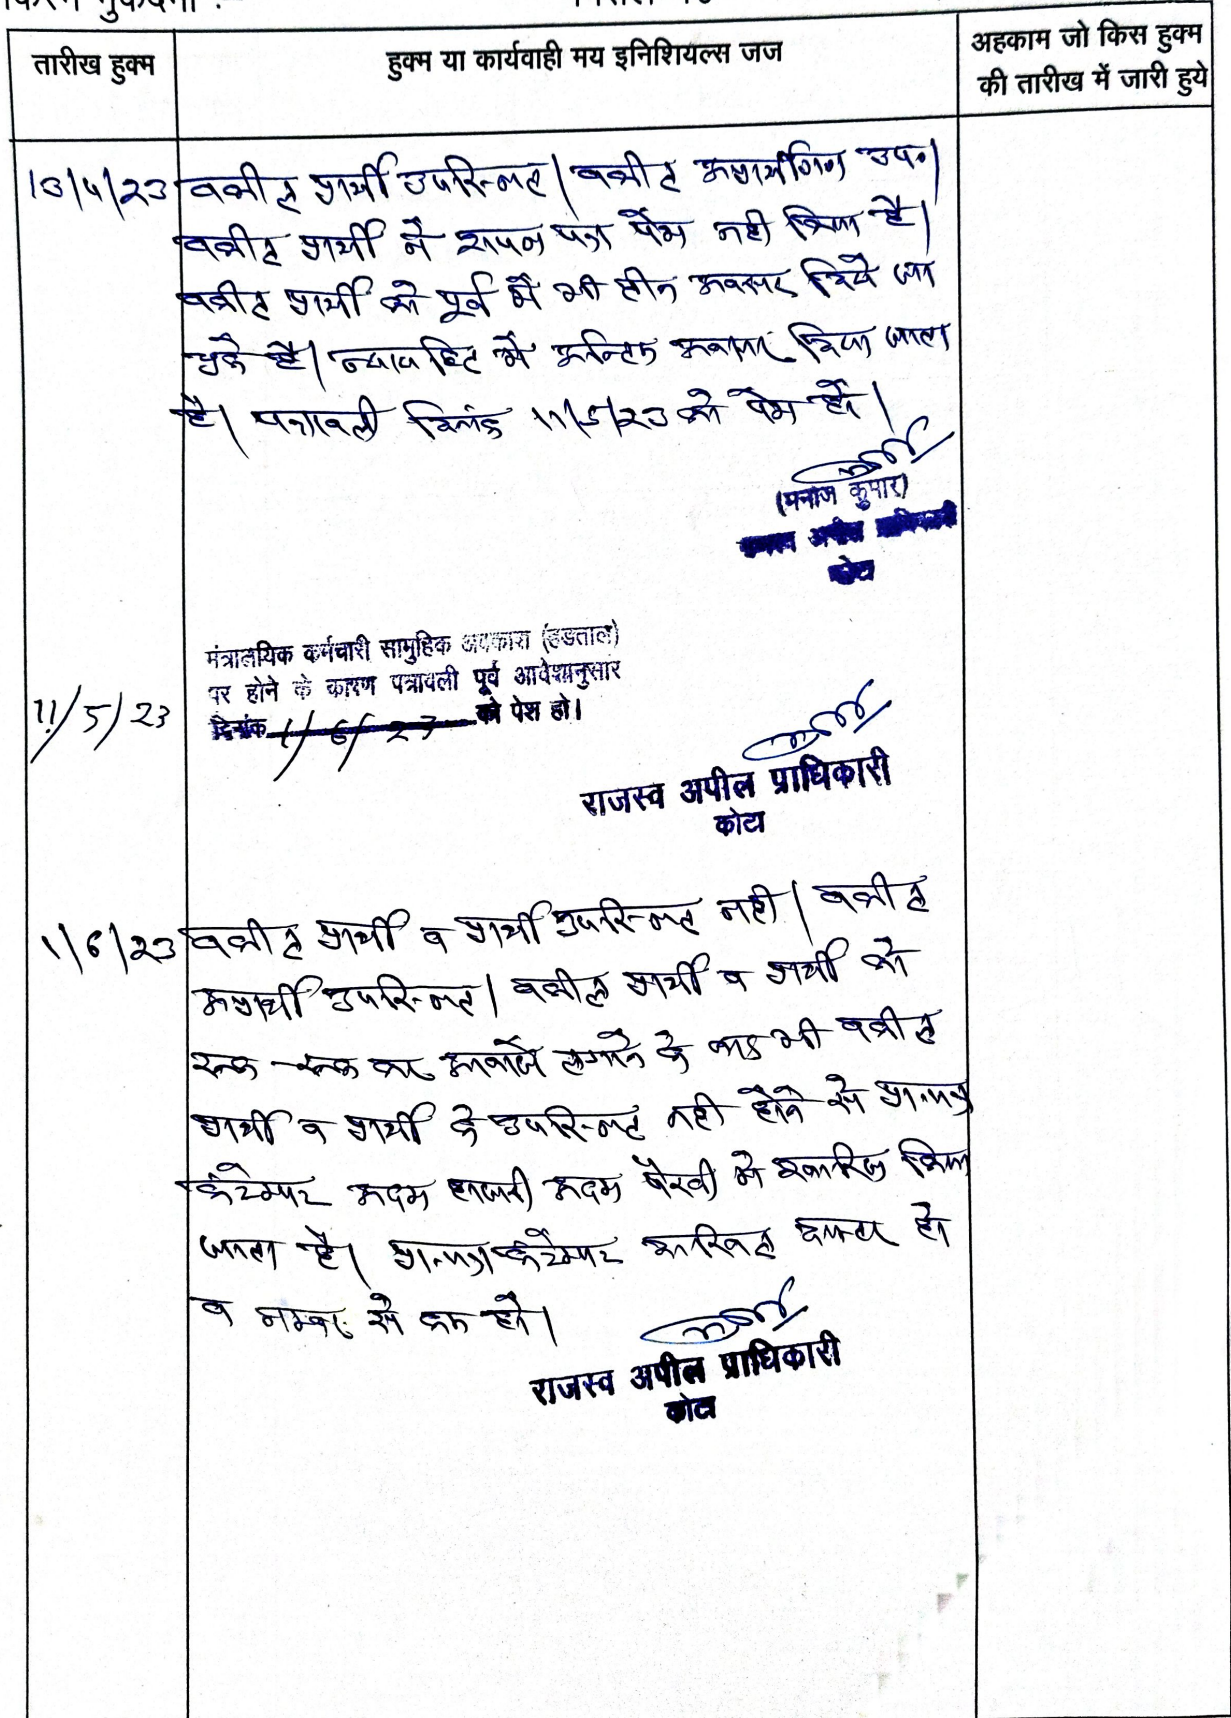 तारीख हुक्म
हुक्म या कार्यवाही मय इनिशियल्स जज
अहकाम जो किस हुक्म
की तारीख में जारी हुये
13/4/23 वकील प्रार्थी उपस्थित। वकील अप्रार्थीगण उप०।
वकील प्रार्थी ने शपथ पत्र पेश नही किया है।
वकील प्रार्थी को पूर्व में भी तीन अवसर दिये जा
चुके है। न्यायहित में अन्तिम अवसर दिया जाता
है। पत्रावली दिनांक 11/5/23 को पेश हो।
(मनोज कुमार)
राजस्व अपील प्राधिकारी
कोटा
मंत्रालयिक कर्मचारी सामुहिक अवकाश (हडताल)
पर होने के कारण पत्रावली पूर्व आदेशानुसार
11/5/23 दिनांक 1/6/23 को पेश हो।
राजस्व अपील प्राधिकारी
कोटा
1/6/23 वकील प्रार्थी व प्रार्थी उपस्थित नही। वकील
अप्रार्थी उपस्थित। वकील प्रार्थी व प्रार्थी को
रुक-रुक कर आवाजे लगाने के बाद भी वकील
प्रार्थी व प्रार्थी के उपस्थित नही होने से प्रा.पत्र
कंटेम्पट अदम हाजरी अदम पैरवी मे खारिज किया
जाता है। प्रा.पत्र कंटेम्पट दाखिल दफ्तर हो
व नम्बर से कम हो।
राजस्व अपील प्राधिकारी
कोटा